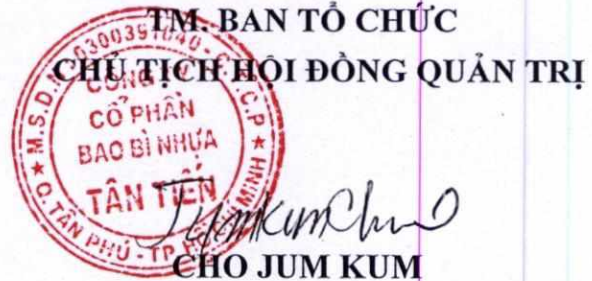 TM. BAN TỔ CHỨC
CHỦ TỊCH HỘI ĐỒNG QUẢN TRỊ
M.S.D.N: 0300391040 - C.T.C.P
CÔNG TY
CỔ PHẦN
BAO BÌ NHỰA
TÂN TIẾN
Q. TÂN PHÚ - TP HỒ CHÍ MINH
JumKumCho
CHO JUM KUM